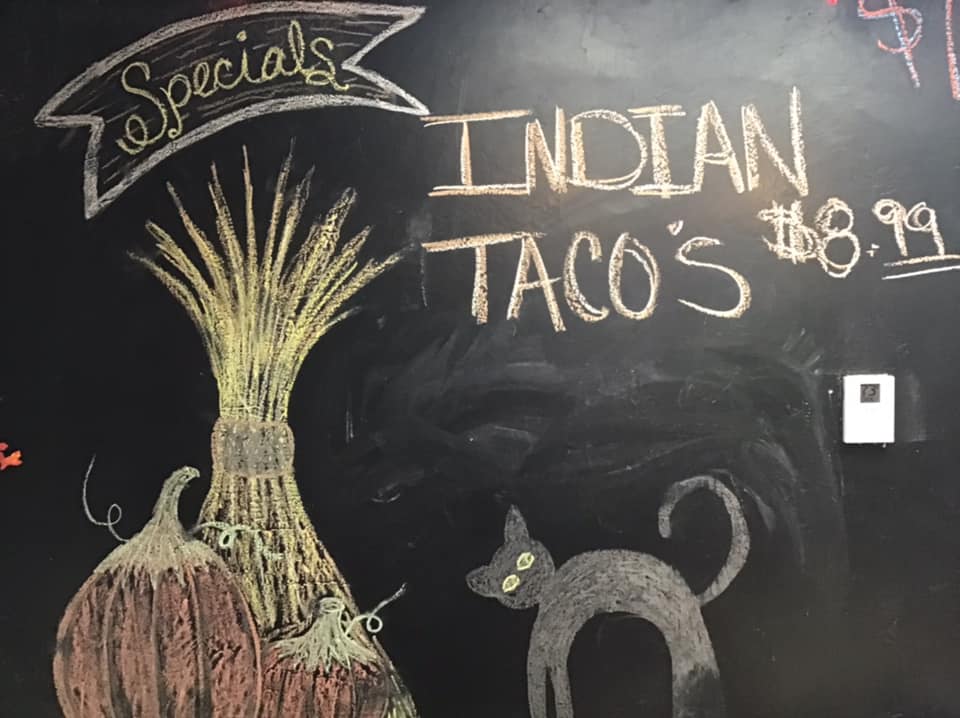 Specials
INDIAN
TACO'S $8.99
$1